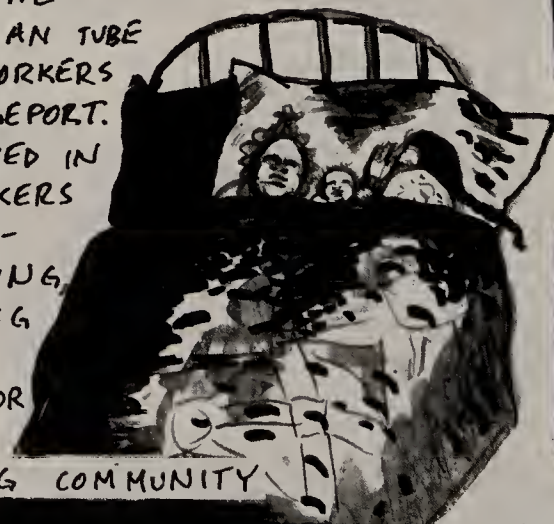 AN TUBE
ORKERS
EPORT.
ED IN
KERS
-
ING,
G
OR
G COMMUNITY